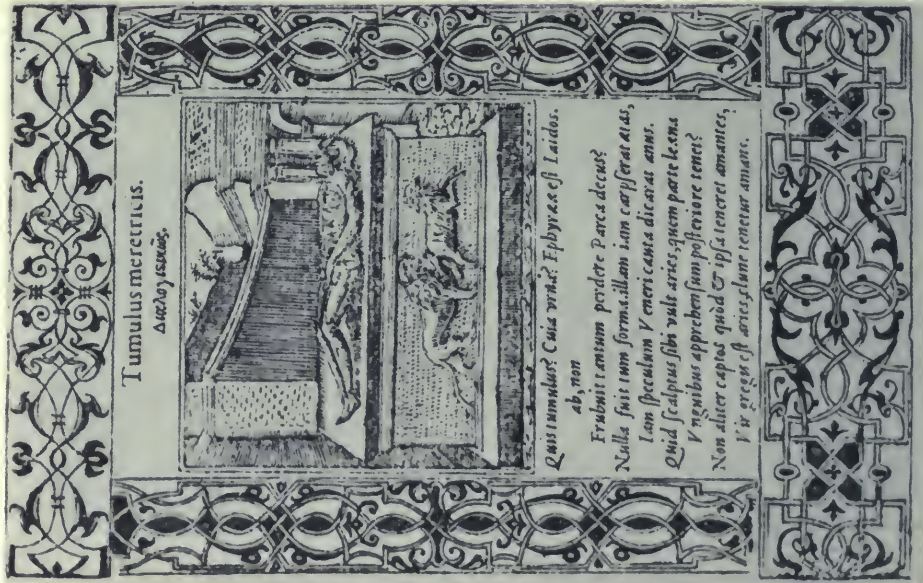 Tumulus meretricis.
Διαλογιστικῶς.
Quis tumulus? Cuia vrna? Ephyreæ est Laidos.
ah, non
Erubuit tantum perdere Parca decus?
Nulla fuit tum forma. illam iam carpserat ætas,
Iam speculum Veneri cauta dicarat anus.
Quid scalptus sibi vult aries, quem parte leæna
Vnguibus apprehensum posteriore tenet?
Non aliter captos quòd & ipsa teneret amantes,
Vir gregis est aries, clune tenetur amans.